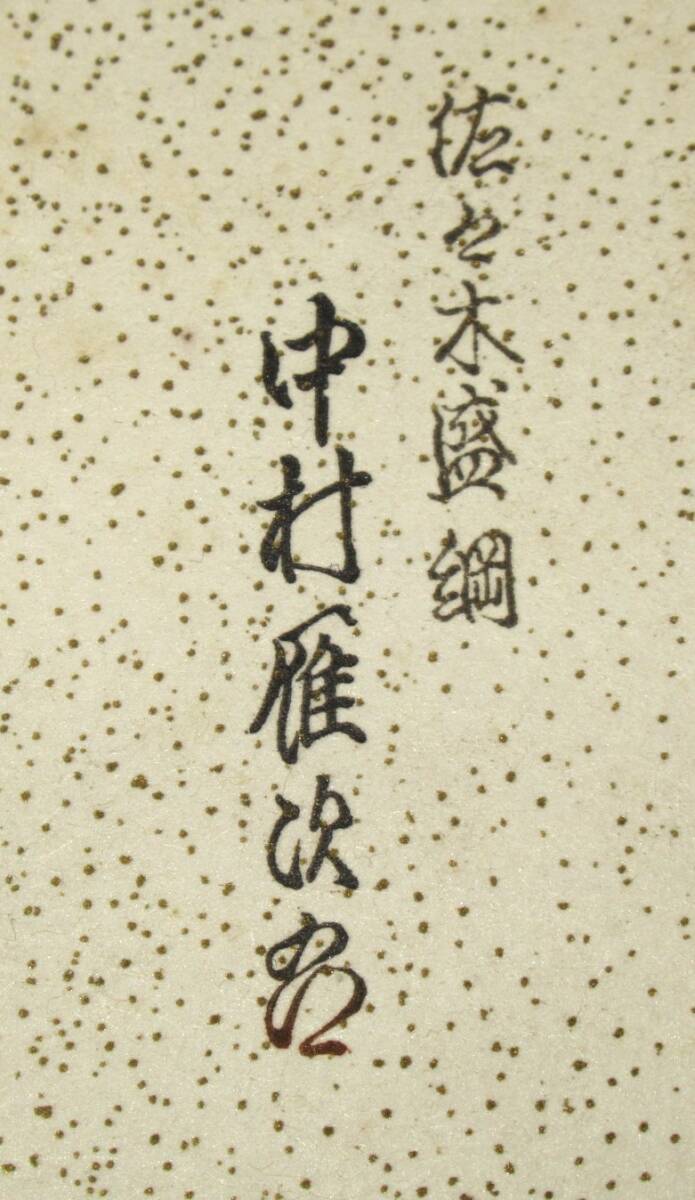 佐々木盛綱
中村雁次郎